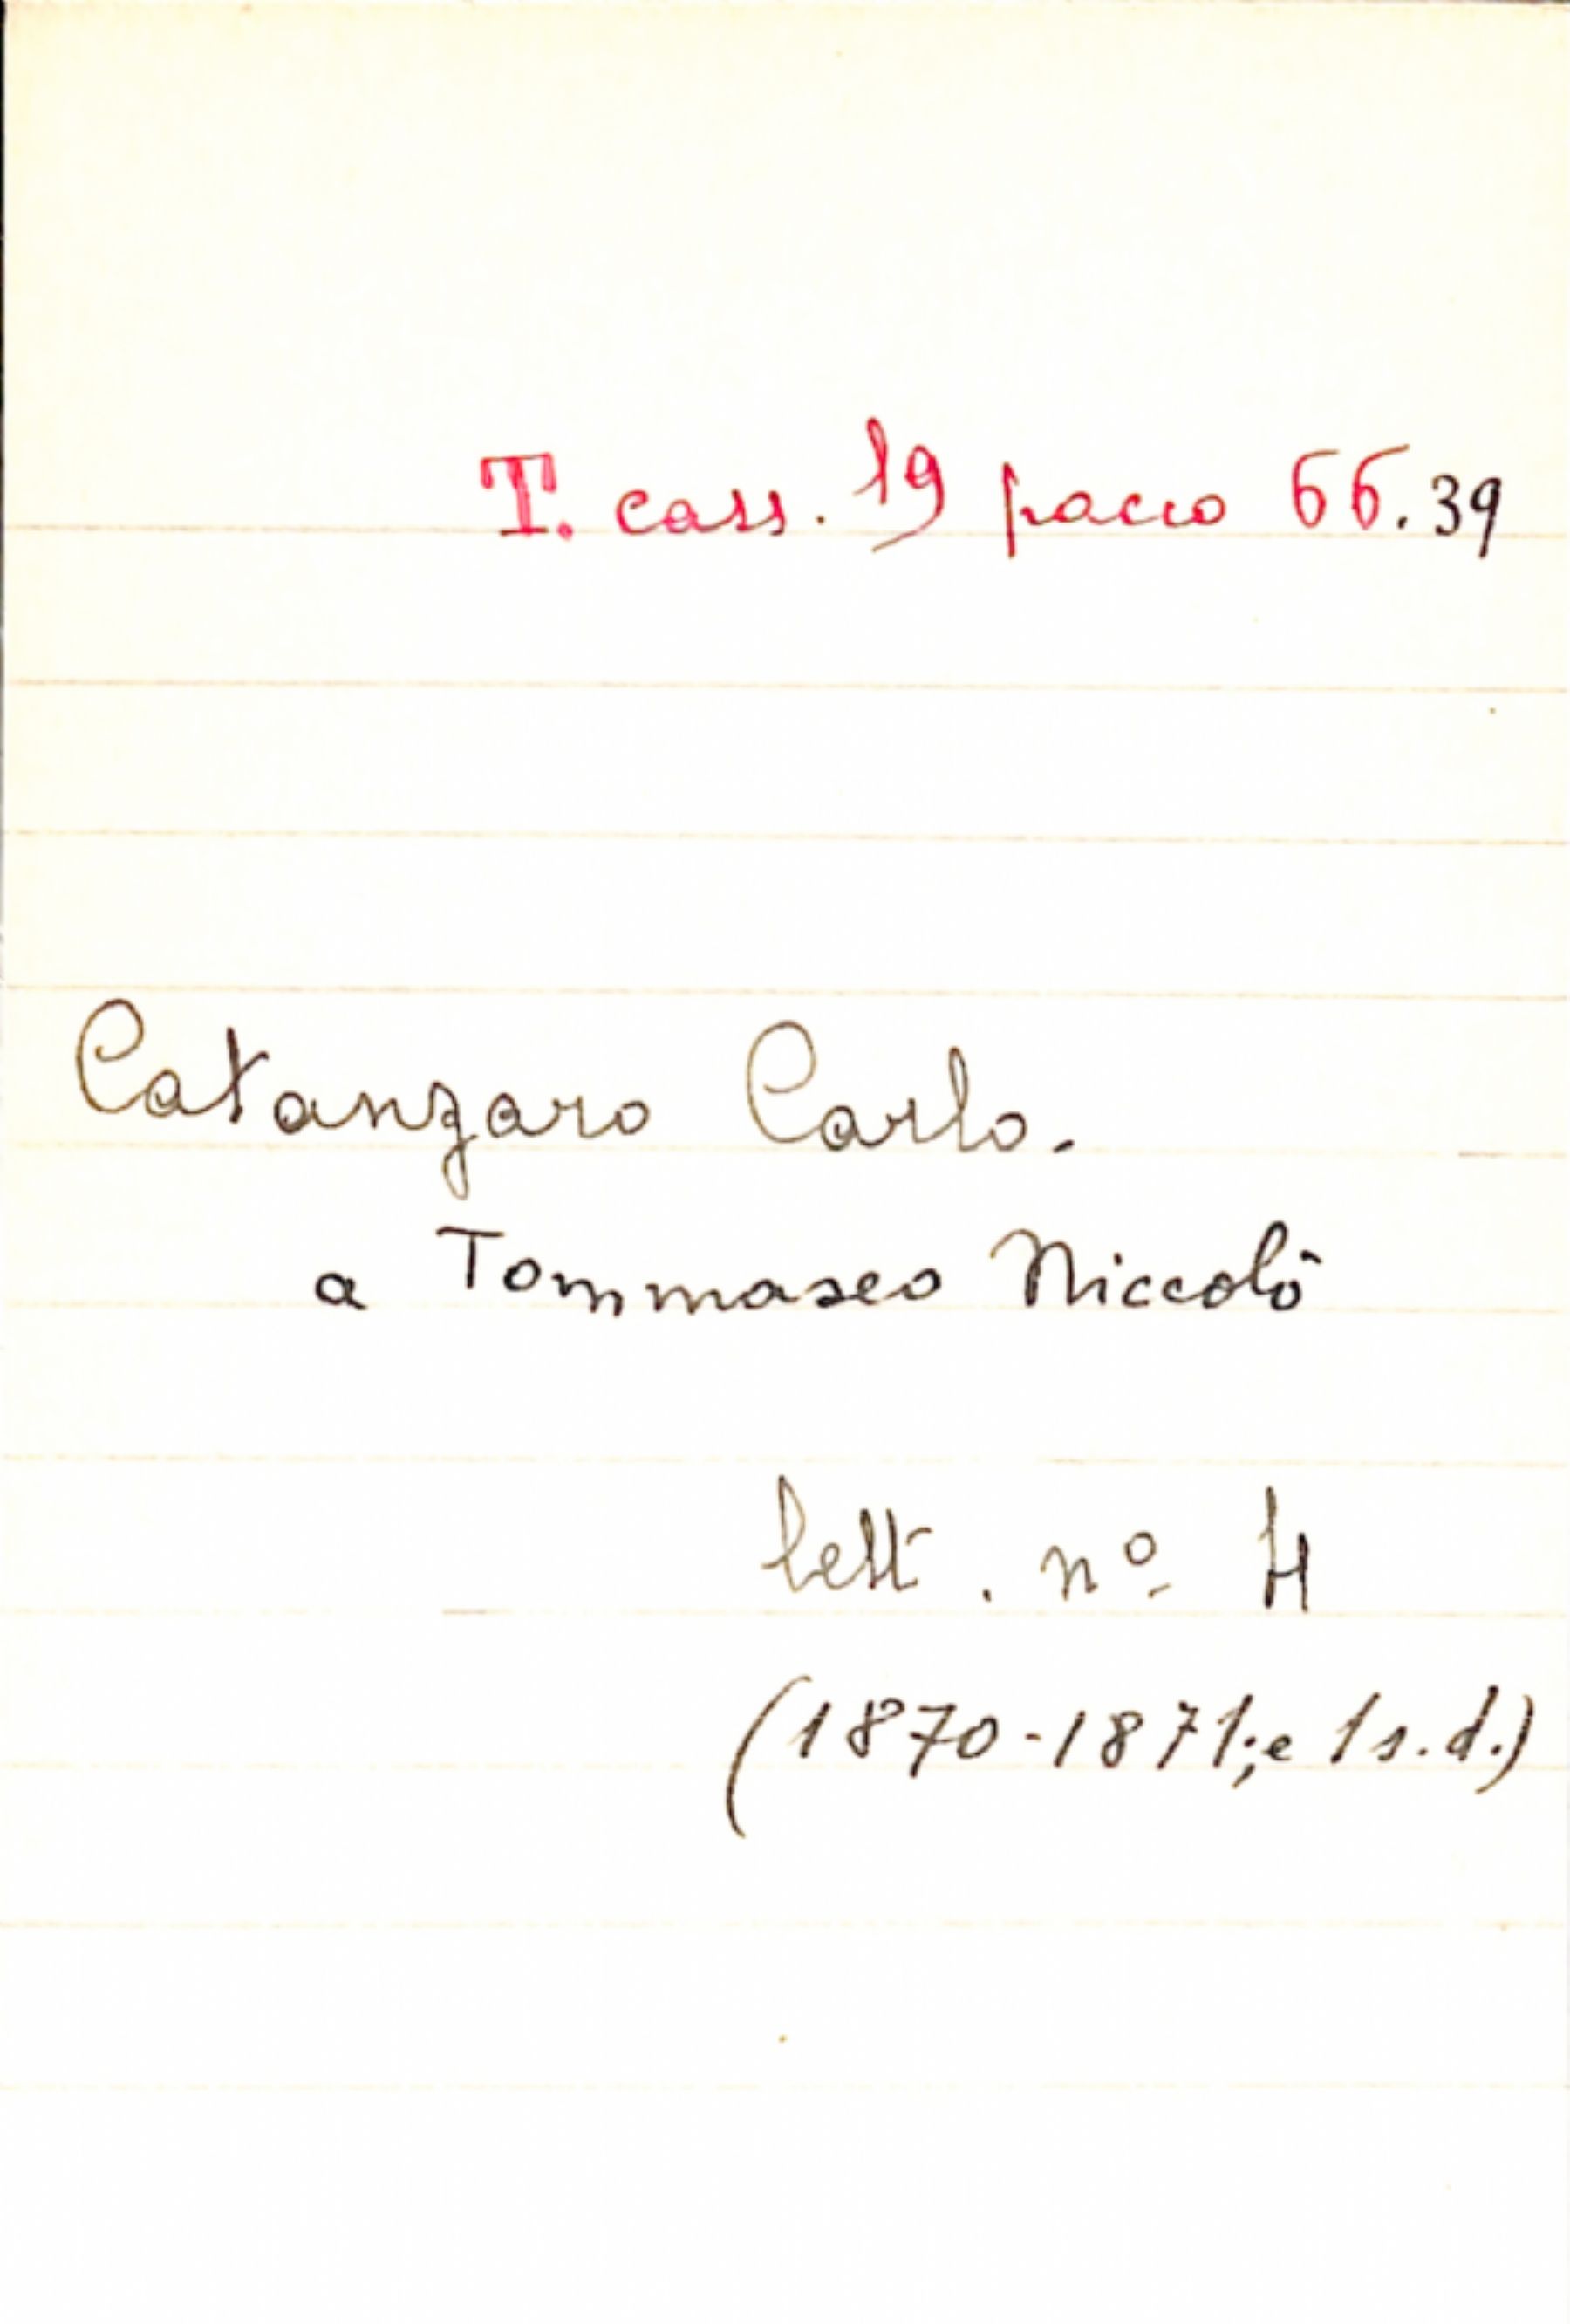 T. cass. 19 pacco 66.39
Catanzaro Carlo.
a Tommaseo Niccolò
lett. nº 4
(1870-1871; e 1 s.d.)